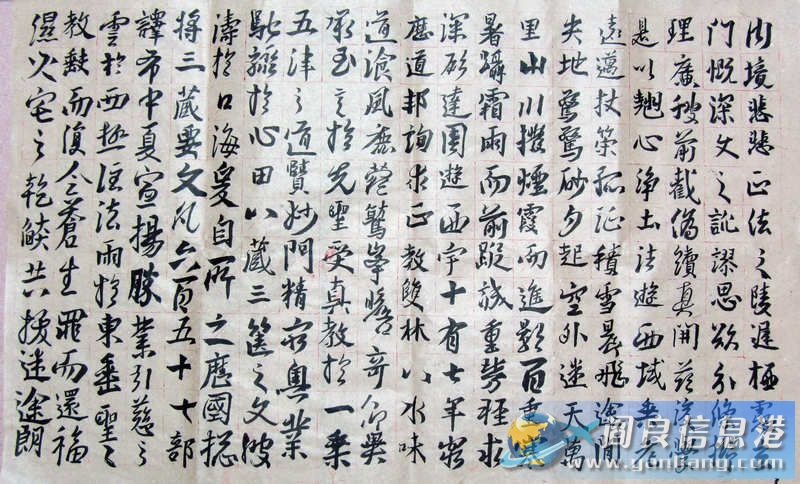 内境悲悲正法之陵遲栖慮玄
門慨深文之訛謬思欲分條析
理廣彼前截偽續真開茲後學
是以翹心淨土法遊西域乘危
遠邁杖策孤征積雪晨飛途間
失地驚砂夕起空外迷天萬
里山川撥煙霞而進影百重寒
暑躡霜雨而前蹤誠重勞輕求
深願達周遊西宇十有七年窮
歷道邦詢求正教雙林八水味
道飡風鹿菀鷲峯瞻奇仰異
承至言於先聖受真教於一乘
五津之道賢妙門精窮奧業
馳驟於心田八藏三篋之文波
濤於口海爰自所之歷國摠
將三藏要文凡六百五十七部
譯布中夏宣揚勝業引慈之
雲於西極注法雨於東垂聖之
教缺而復全蒼生罪而還福
濕火宅之乾燄共拔迷途朗
阎良信息港